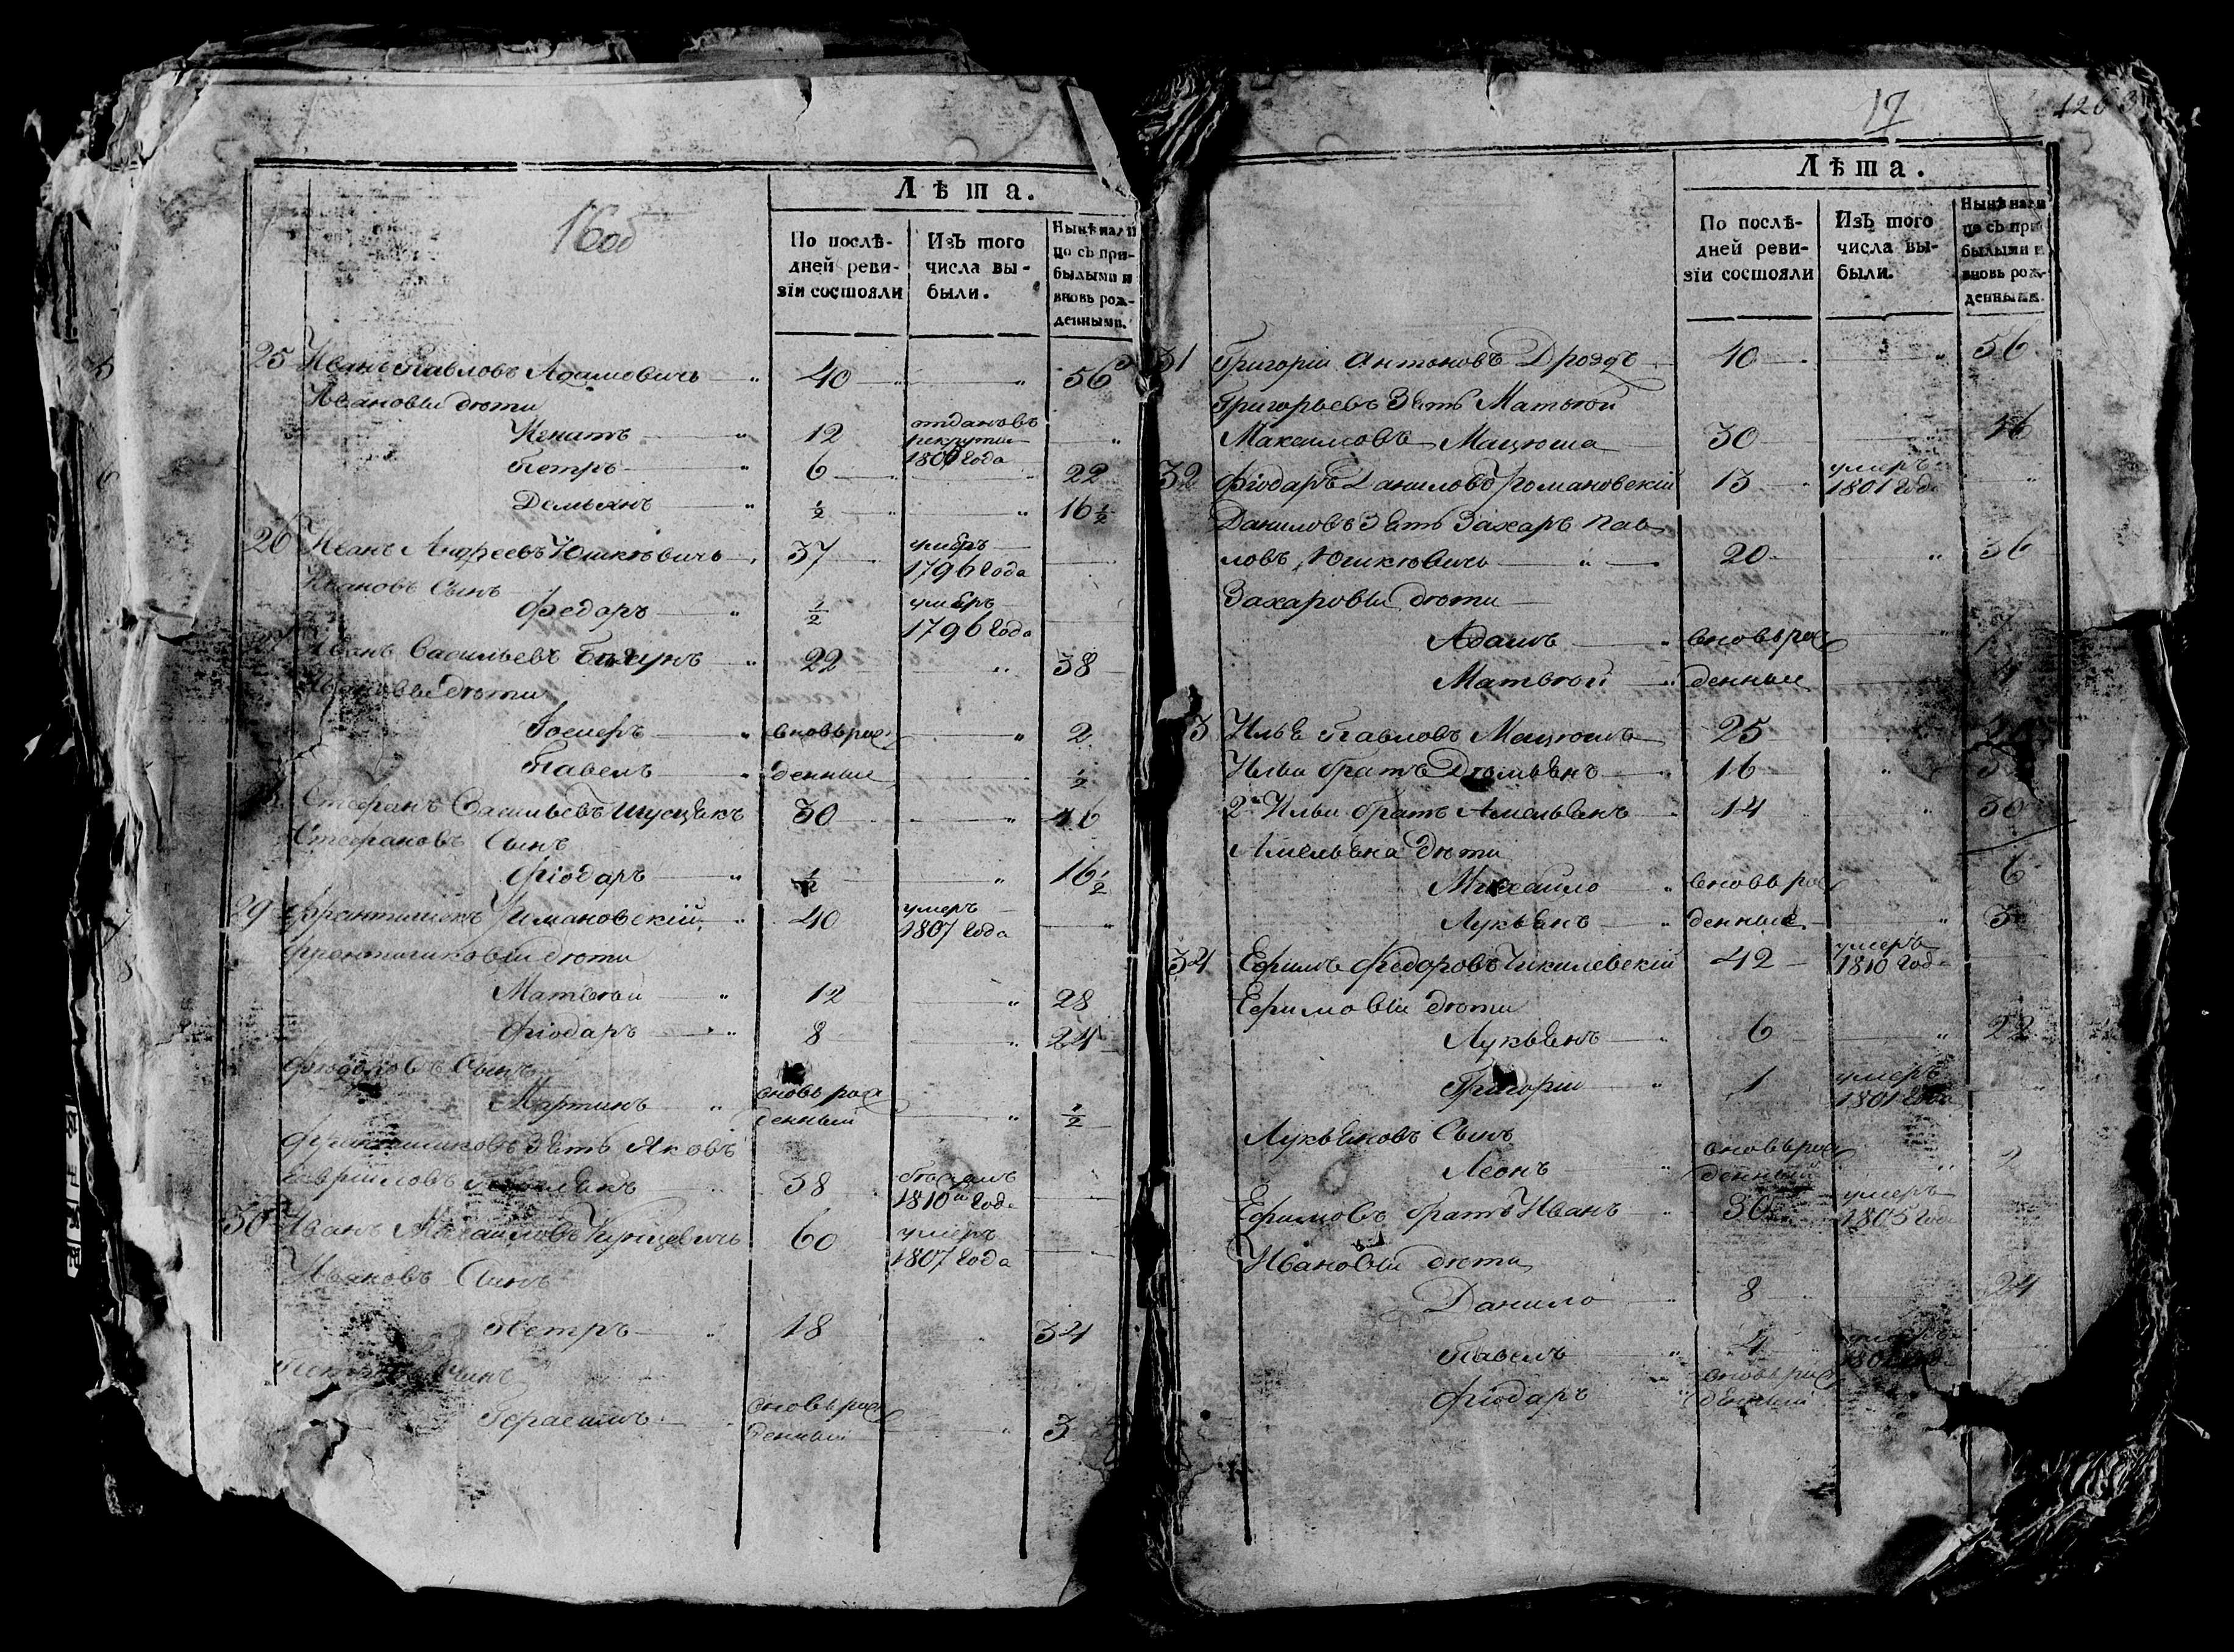 16об
Лѣта.
По послѣ-
дней реви-
зіи состояли
Изъ того
числа вы-
были.
Нынѣ нали
цо съ при-
былыми и
вновь рож-
денными.
25 Иванъ Павловъ Адамовичь 40 56
Ивановы дѣти
Игнатъ 12 отданъ въ
рекруты
1807 года
Петръ 6 22
Демьянъ ½ 16½
26 Иванъ Андреевъ Юшкѣвичь 37 умеръ
1796 года
Ивановъ Сынъ
Федоръ ½ умеръ
1796 года
Иванъ Васильевъ 22 38
Ивановы дѣти
вновь рож 2
Павелъ денные ½
Стефанъ Васильевъ 30 46
Стефановъ Сынъ
Фіодаръ ½ 16½
29 40 умеръ
1807 года
дѣти
Матвѣй 12 28
Фіодаръ 8 24
Сынъ
Мартинъ вновь рож
денный ½
зять Яковъ
Гавриловъ 38
1810 год
30 Иванъ Михайловъ 60 умеръ
1807 года
Ивановъ Сынъ
Петръ 18 34
Сынъ
Герасимъ вновь рож
денный 3
17
Лѣта.
По послѣ-
дней реви-
зіи состояли
Изъ того
числа вы-
были.
Нынѣ нали
цо съ при
былыми и
вновь рож-
денными.
31 Григорій Антоновъ Дроздъ 40 56
Григорьевъ Зять Матвѣй
Максимовъ Мацюша 30 46
32 Фіодаръ Даниловъ Романовскій 13 умеръ
1801 год
Даниловъ Зять Захаръ Пав
ловъ Юшкѣвичь 20 36
Захаровы дѣти
Адамъ вновь рож
Матвѣй денные
3 Илья Павловъ Мацюшъ 25
Ильи братъ Дѣмьянъ 16
2й Ильи братъ Амельянъ 14 30
Амельяна дѣти
Михайло вновь рож 6
Лукьянъ денные 3
34 Ефимъ Федоровъ 42 умеръ
1810 год
Ефимовы дѣти
Лукьянъ 6 22
Григорій 1 умеръ
1801 года
Лукьяновъ Сынъ
Леонъ вновь рож
денный 2
Ефимовъ братъ Иванъ 30 умеръ
1805 год
Ивановы дѣти
Данило 8 24
Павелъ 4 умеръ
Фіодаръ вновь рож
денный